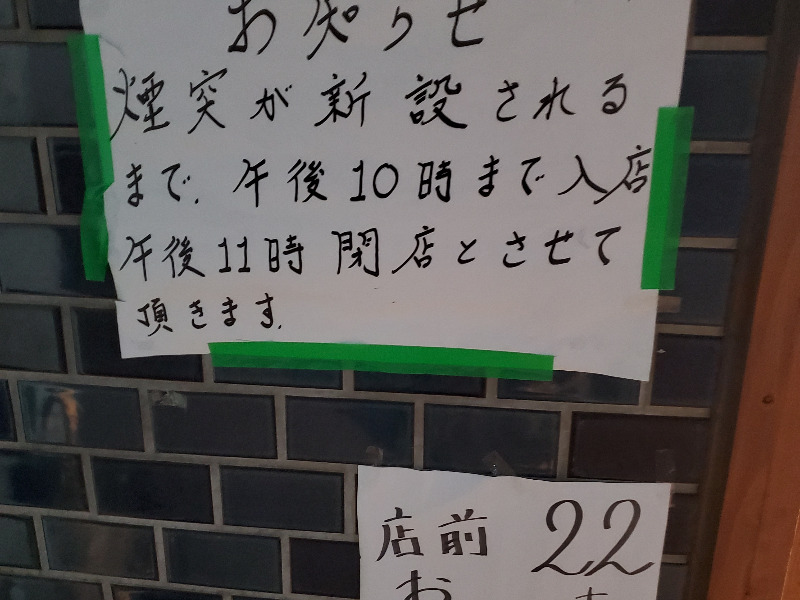 お知らせ
煙突が新設される
まで、午後10時まで入店
午後11時閉店とさせて
頂きます。
店前 22
お